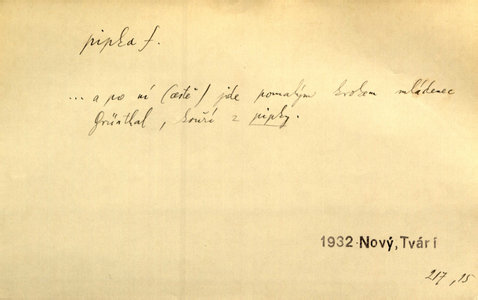 pipka f.
... a po ní (cestě) jde pomalým krokem mládenec
Grünthal, kouří z pipky.
1932 Nový, Tváří
217, 15